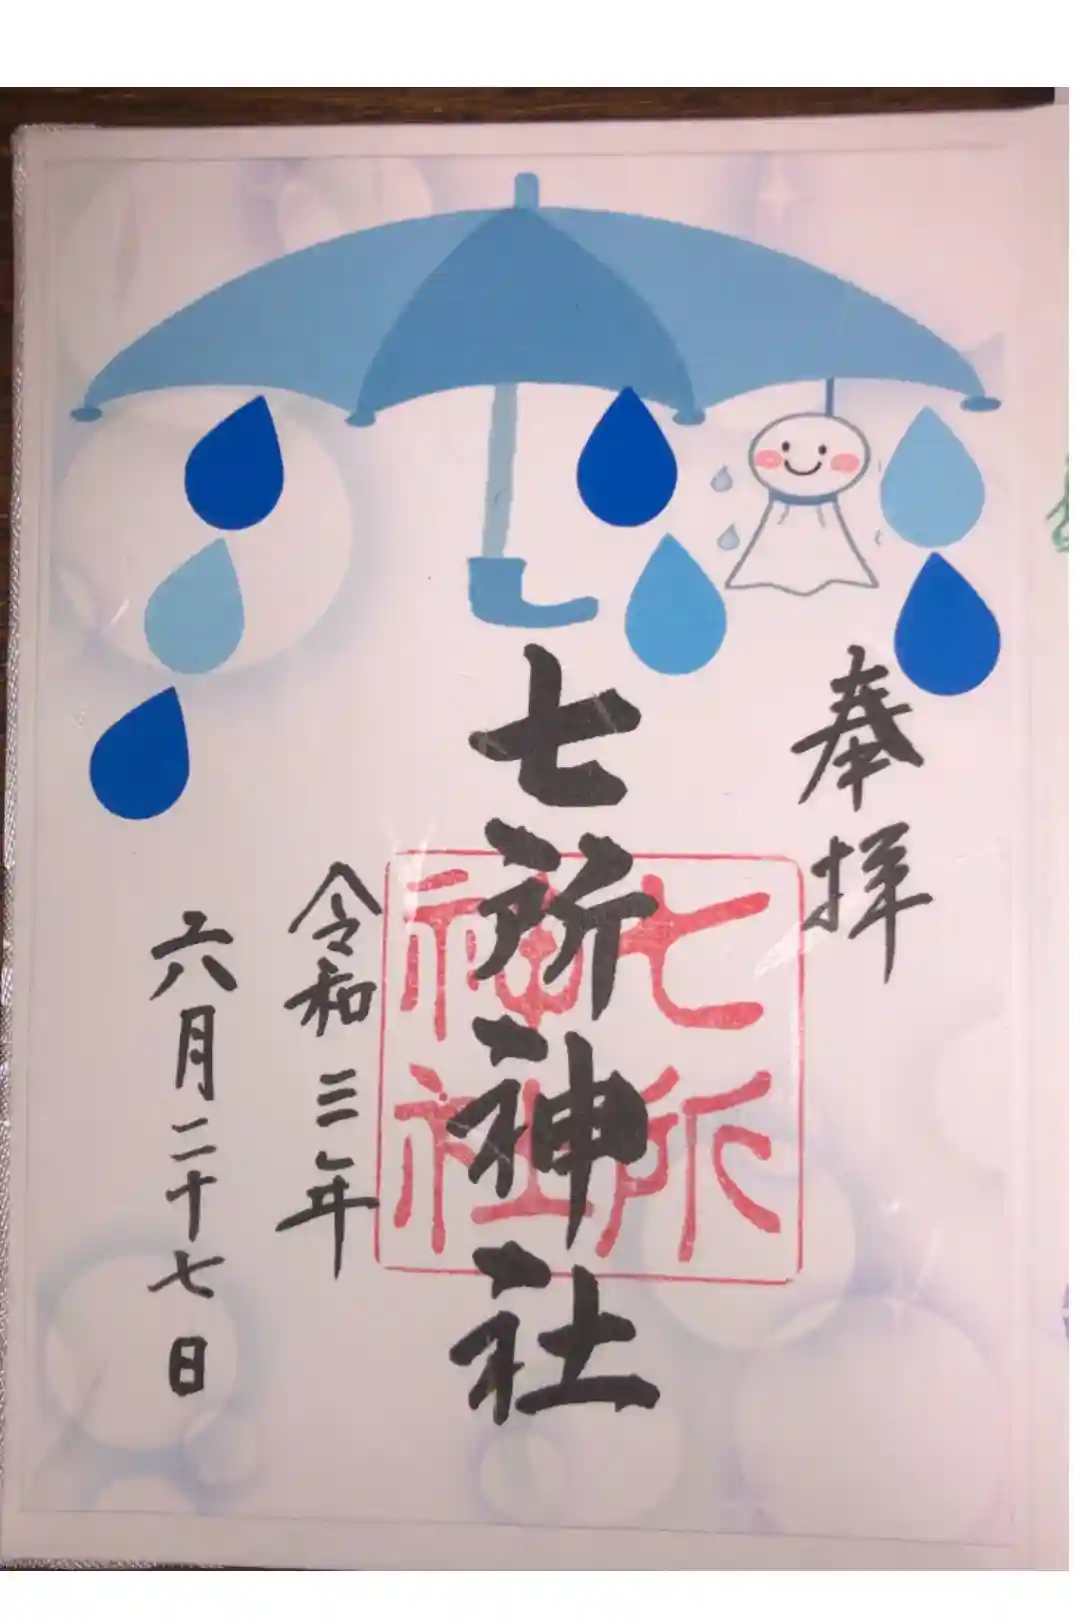 奉拝
七所神社
七所
神社
令和三年
六月二十七日